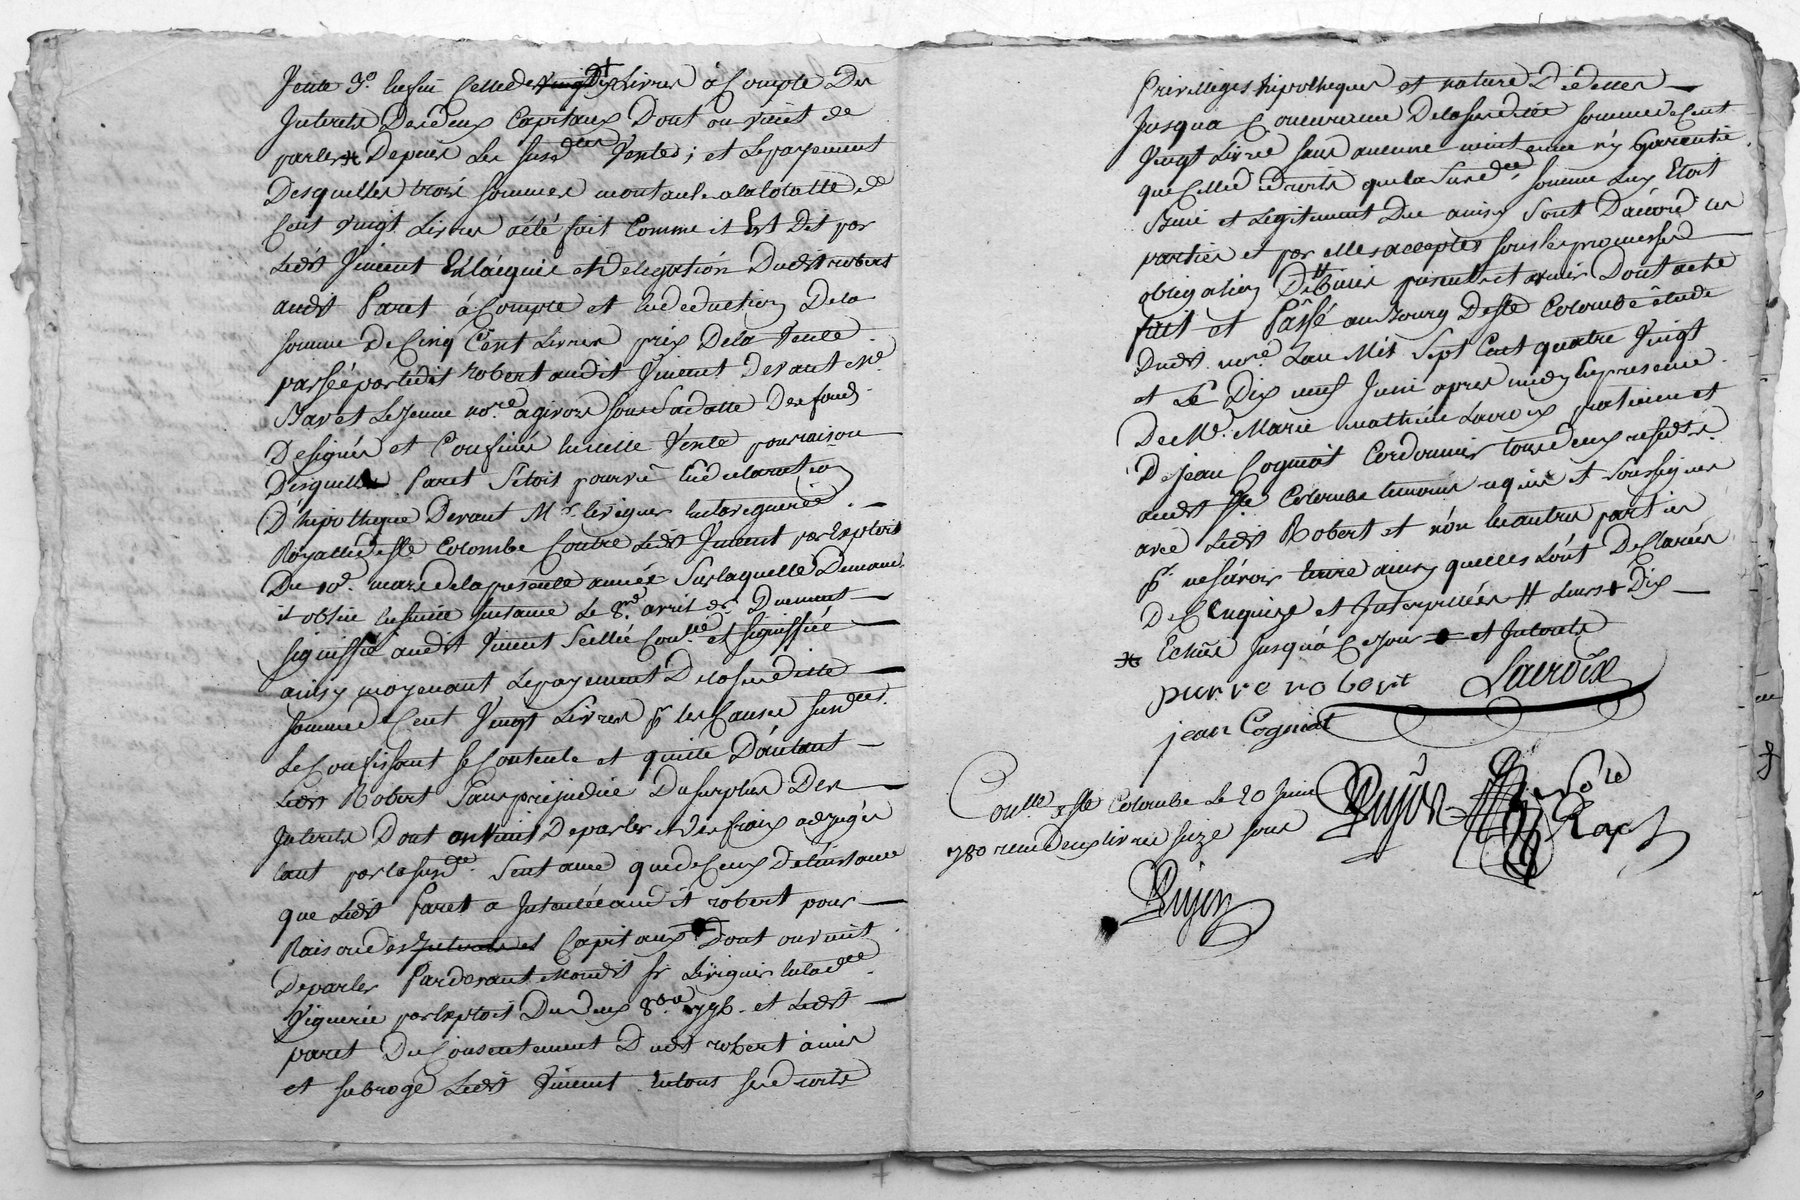 Vente 3.º Enfin Celle de vingt Dix Livres à Compte Des
Interets Desdeux Capitaux Dont on vient de
parler Depuis Les susd.tes Ventes; et Le payement
Desquelles trois sommes montante alatotalle de
Cent vingt Livres a été fait Comme il Est Dit par
Ledit Vincent En l'acquit et Deligation Dudit robert
audit Paret à Compte et En deduction De la
somme De Cinq Cent Livres prix De la Vente
passée par ledit robert audit Vincent Devant M.e
Bavet Le Jeune no.re a givors sous sa datte Des fonds
Designés et Confinés En icelle Vente pour raison
Desquelles Paret S'etoit pourvû En declaration
D'hipotheque Devant M.r le viguier En la viguerie
Royalle de s.te Colombe Contre Ledit Vincent par Exploit
Du 10.e mars de la presente année Sur laquelle Demande
il obtint sentence Le 8.me avril d.r Duement
signiffié audit Vincent Scellée Con.llée et signiffiée
ainsy moyenant Le payement De la susditte
somme Cent Vingt Livres p.r les Causes susd.tes
Le Confessant se Contente et quitte D'autant
Ledit Robert Sans prejudice Du surplus Des
Interets Dont on vient De parler et des fraix adjugés
tant par la susd.te Sentance que de Ceux De l'instance
que Ledit Paret a Intentée audit robert pour
Raison des Interets et Capitaux Dont on vient
De parler Pardevant Mondit s.r Le viguier En lad.te
Viguerie par Exploit Du deux 8.bre et Ledit
paret Du Consentement Dudit robert a mis
et subrogé Ledit Vincent En tous ses droits
Privilleges hipotheques et nature D'icelles
Jusqua Concurrence De la susditte somme de Cent
Vingt Livres sans aucune maintenue n'y Garentie
que Celle de droits que la Susd.te somme Luy Etoit
Bien et Legitiment Due ainsy Sont D'accord les
parties et par elles acceptés sous les promesses
obligation De Biens presents et avenir Dont acte
fait et Passé au Bourg De s.te Colombe Etude
Dudit no.re L'an Mil Sept Cent quatre Vingt
et Le Dix neuf Juin apres midy En presence
De M.r Marie mathieu Lacroix praticien et
De jean Cogniat Cordonnier tous deux residts
audit s.te Colombe temoins requis et soussignés
avec Ledit Robert et non les autres parties
p.r ne sçavoir Ecrire ainsy quelles L'ont Declarées
De Ce Enquises et Interpellées # Leurs + Dix
Echus Jusqu'à Ce jour et Interets
pierre robert Lacroix
jean Cogniat
Con.llé à s.te Colombe Le 20 Juin Pujon
1780 reçu deux livres seize sous
Pujon